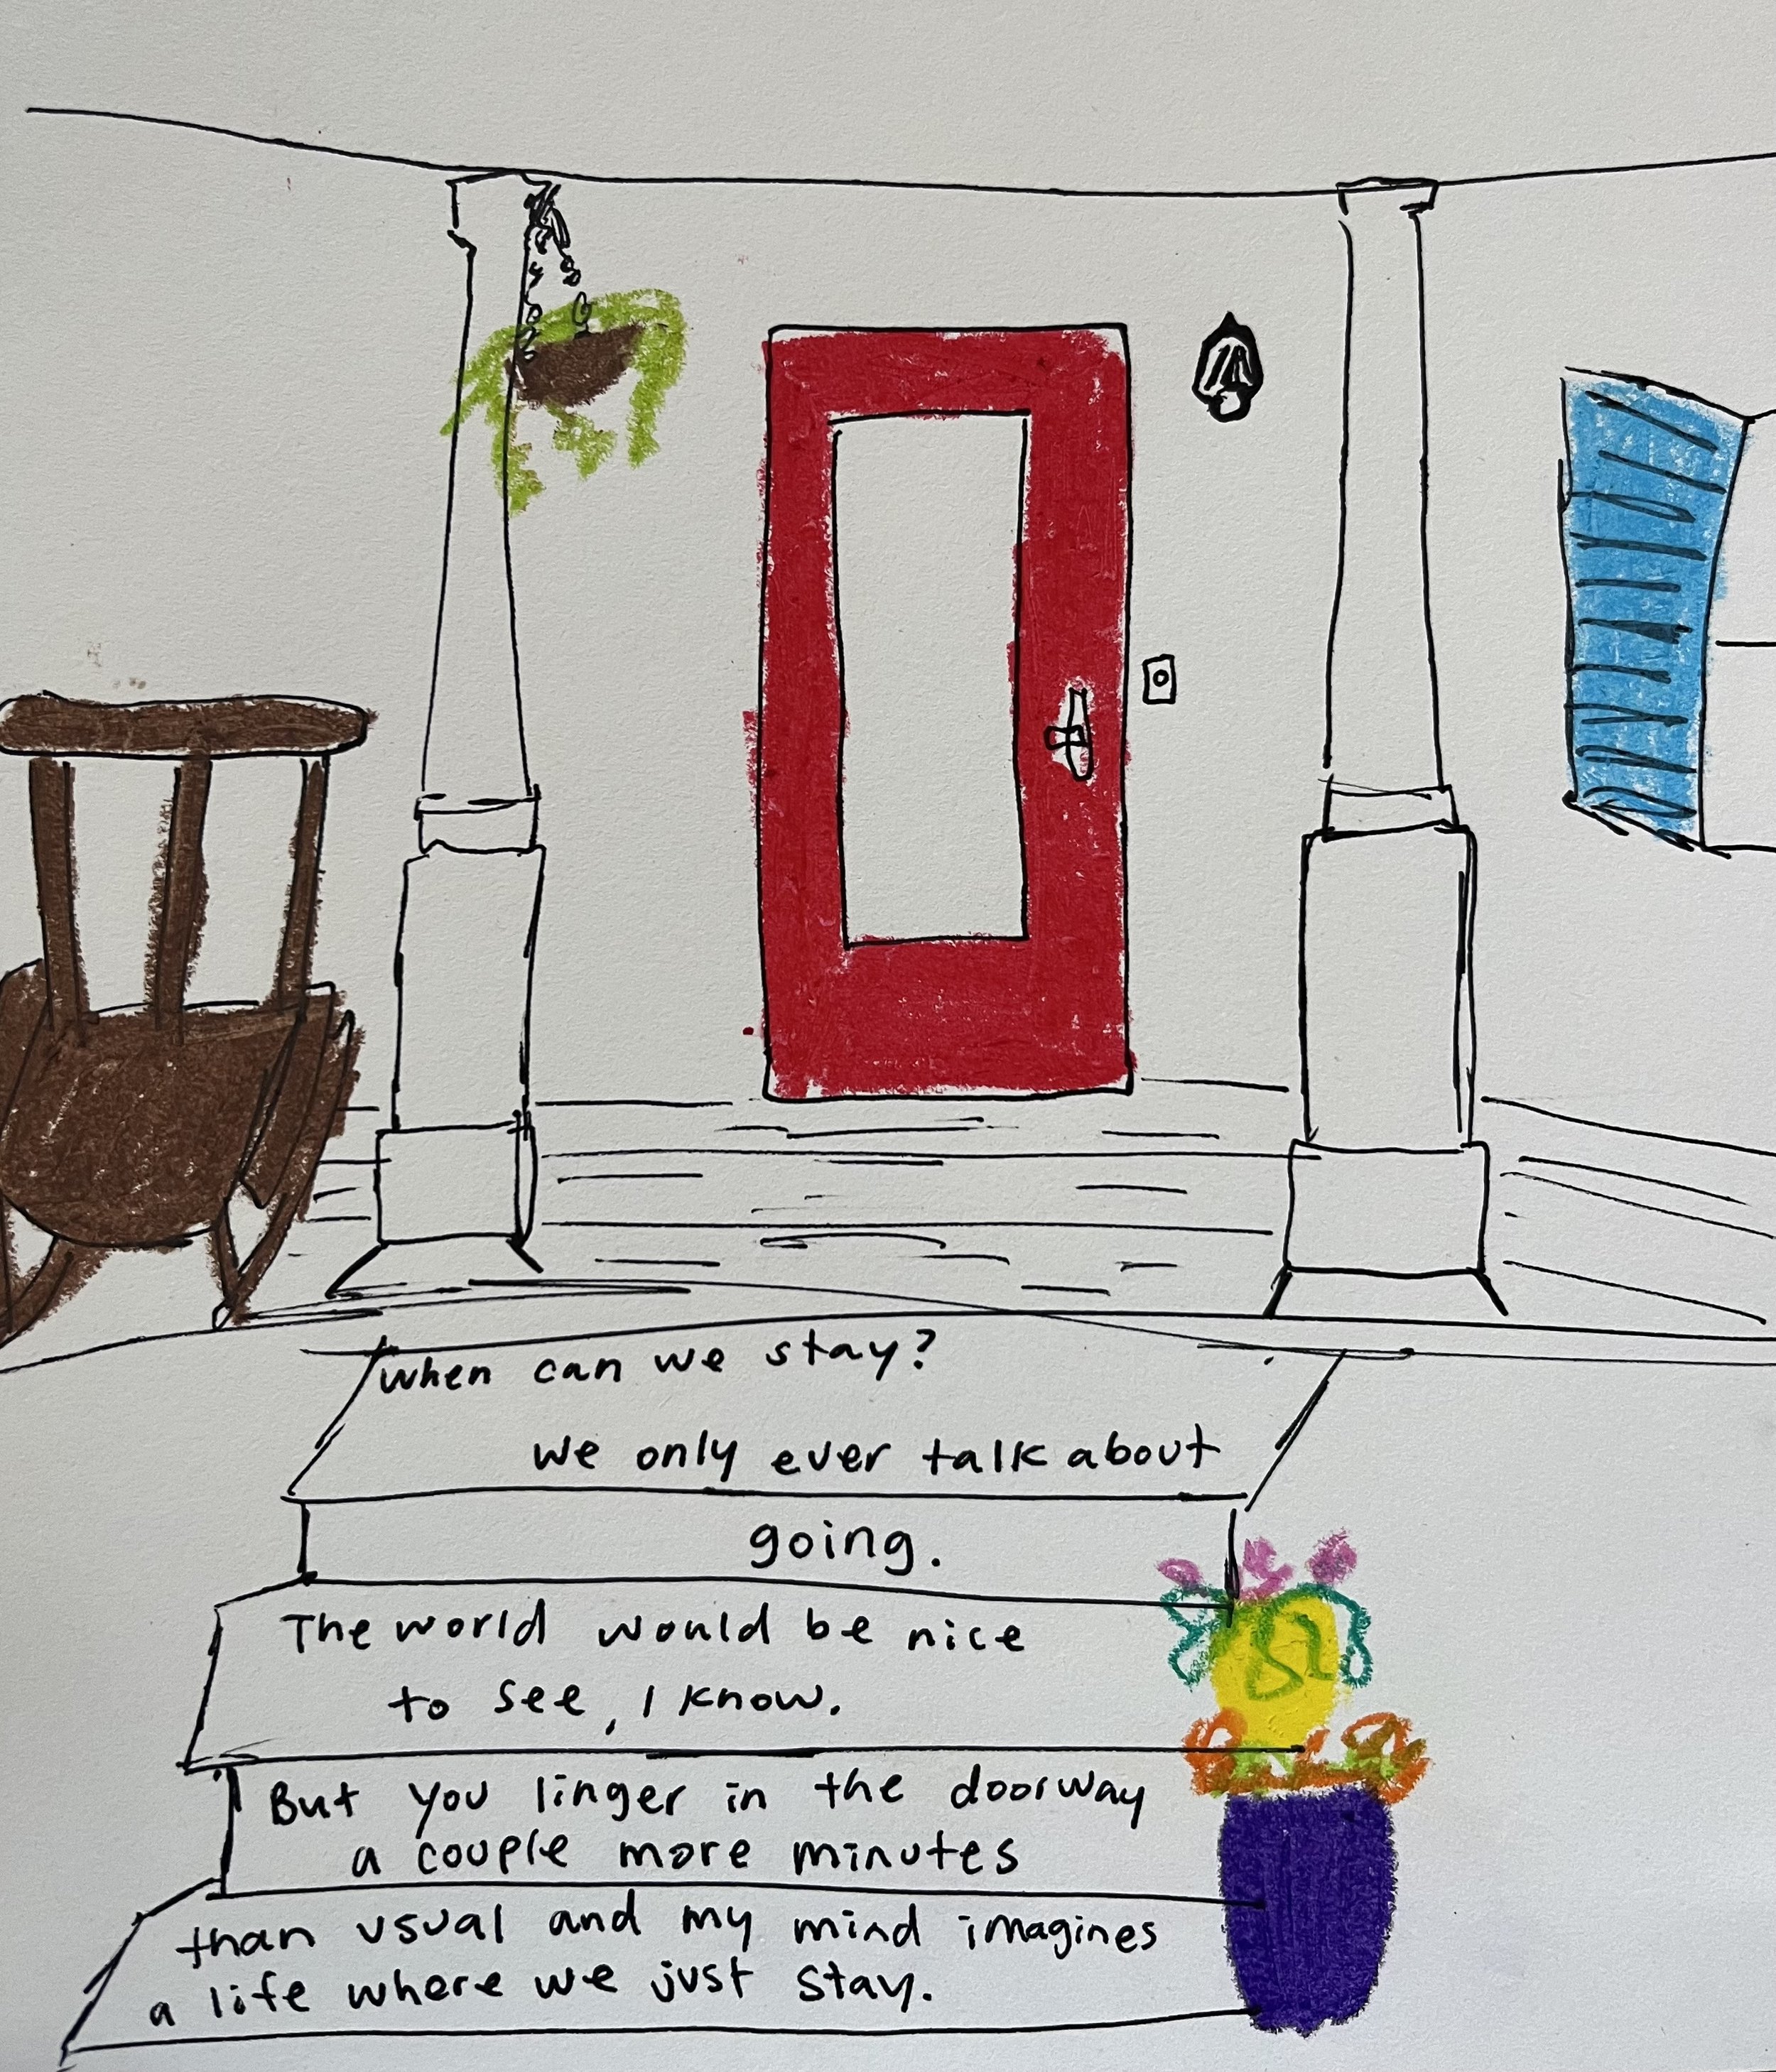 when can we stay?
we only ever talk about
going.
The world would be nice
to see, I know.
But you linger in the doorway
a couple more minutes
than usual and my mind imagines
a life where we just stay.